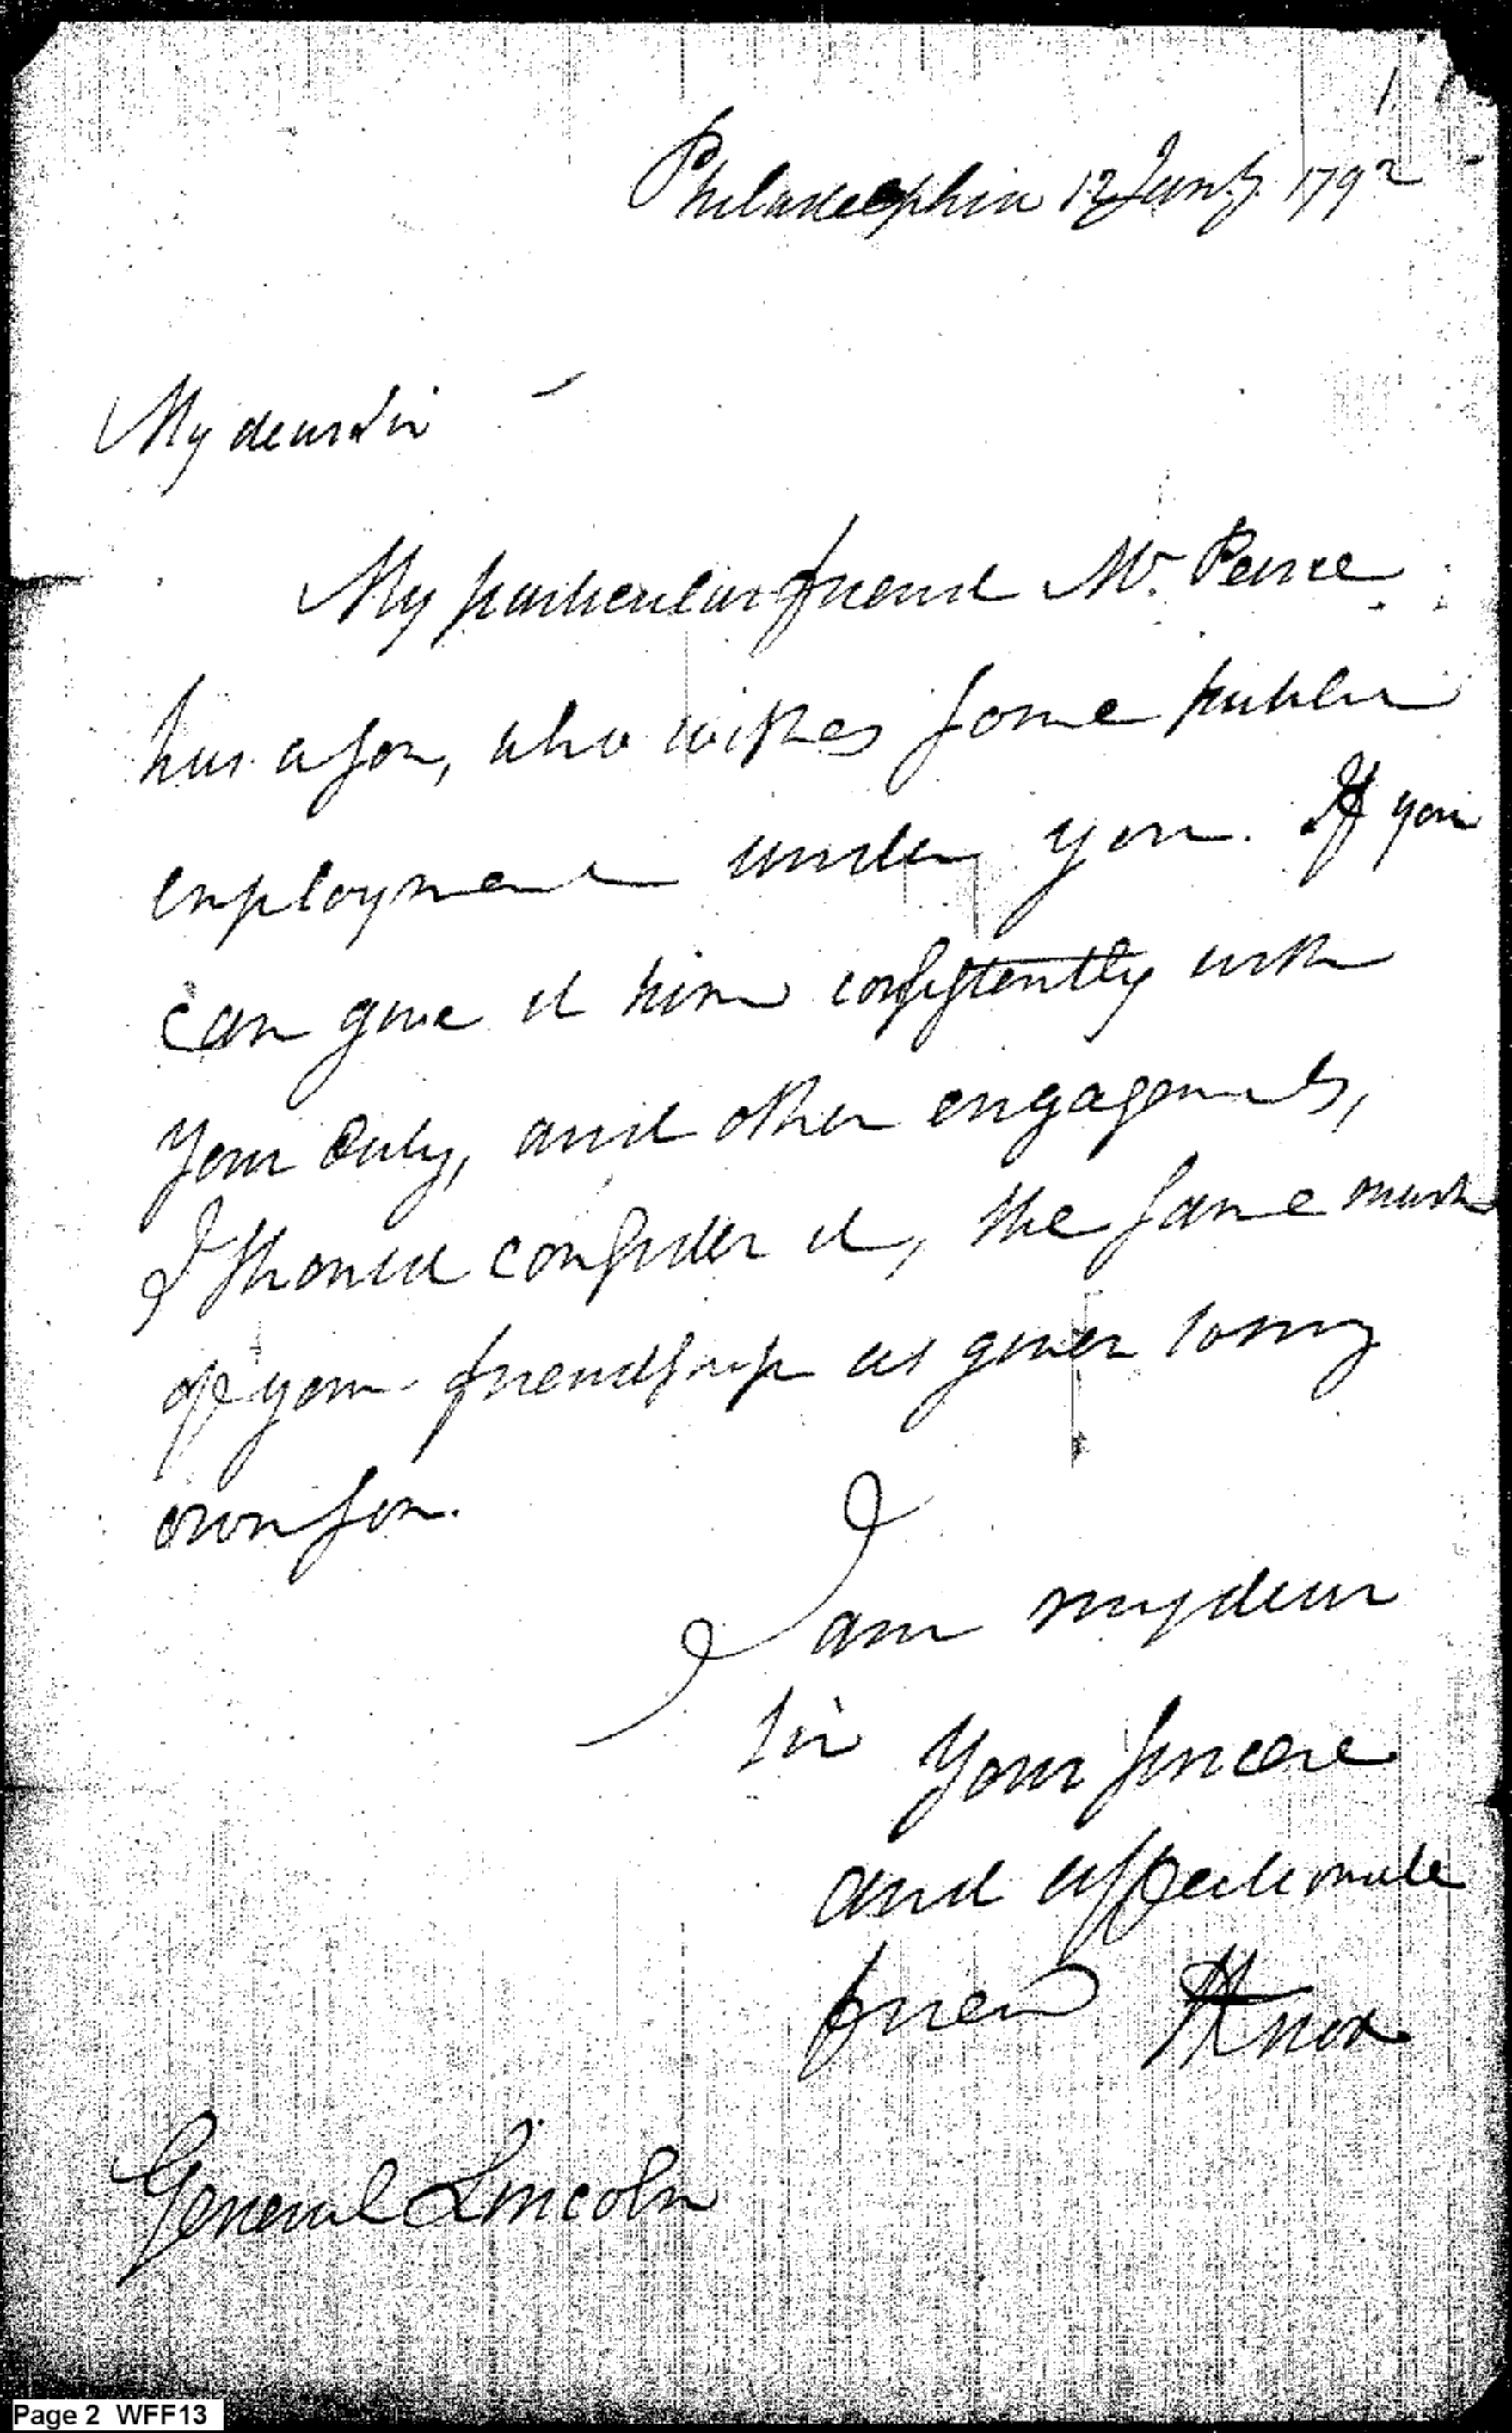 1.
Philadelphia 12 Jany. 1792
My dear Sir
My particular friend Mr. Peirce
has a son, who wishes some public
employment under you. If you
can give it him consistently with
your duty, and other engagements,
I should consider it, the same mark
of your friendship as given to my
own son.
I am my dear
Sir Your sincere
and affectionate
friend HKnox
General Lincoln
Page 2 WFF13